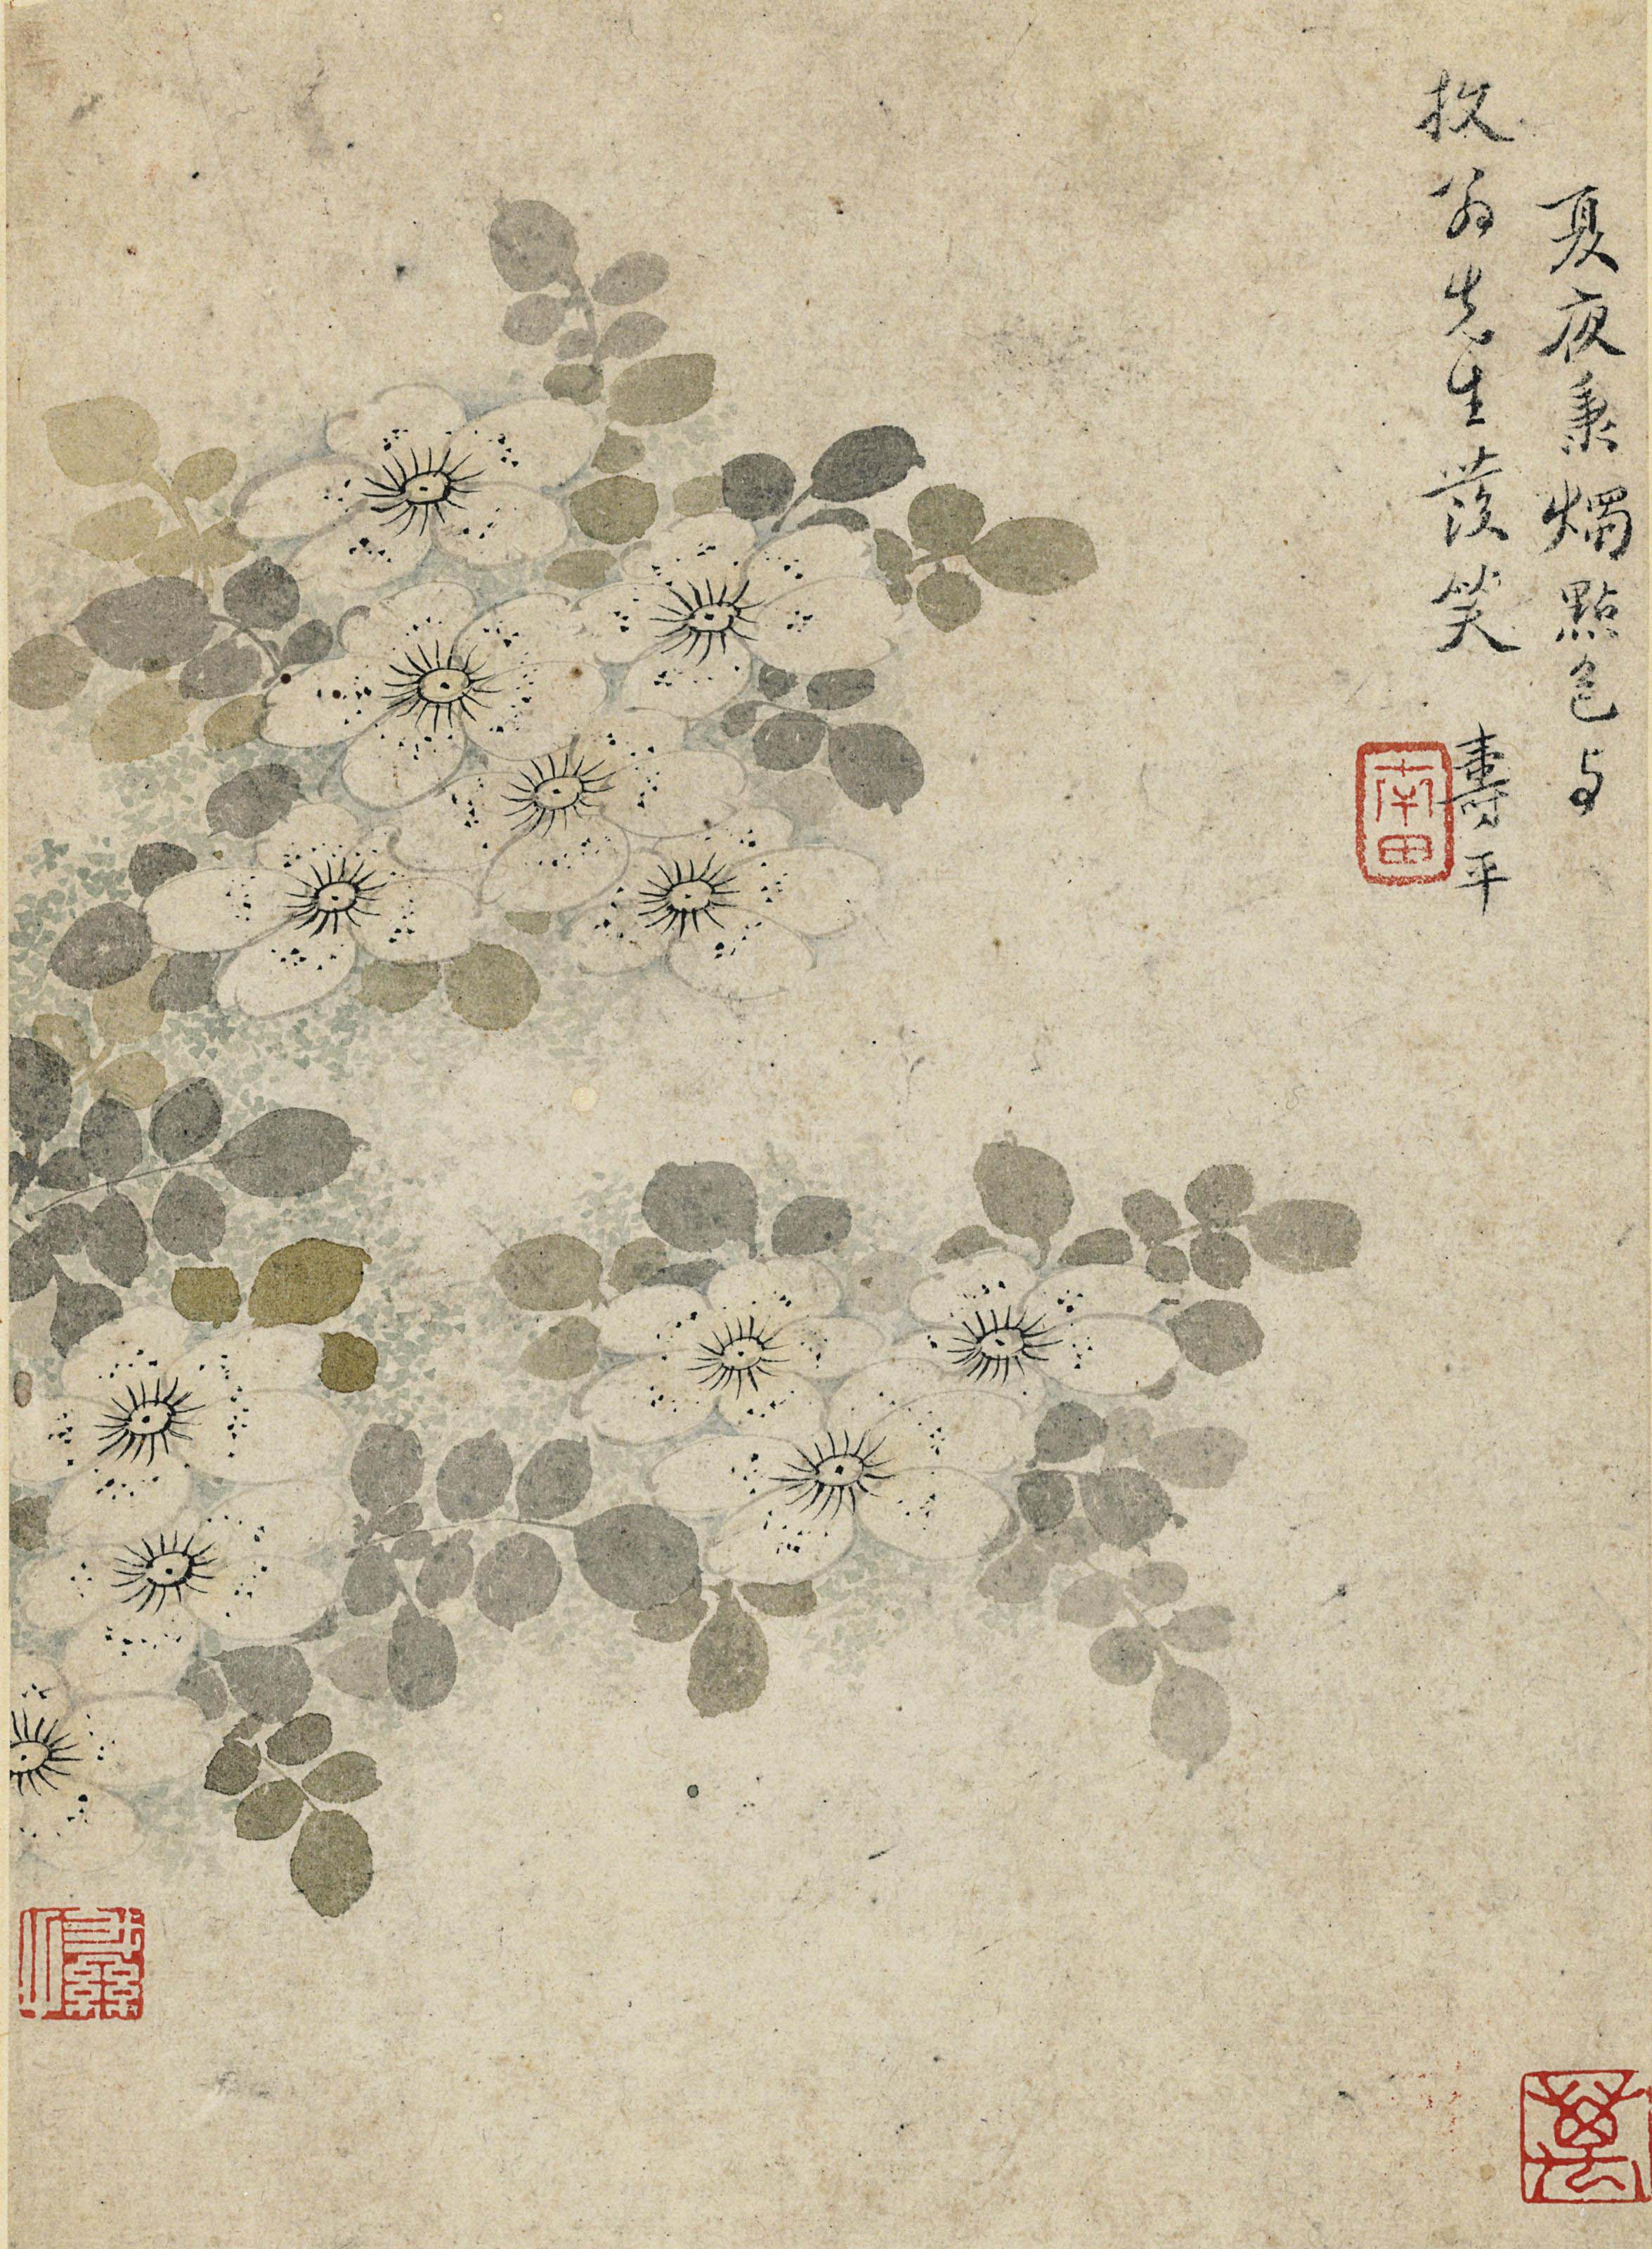 夏夜秉燭點色与
牧翁先生發笑 壽平
南田